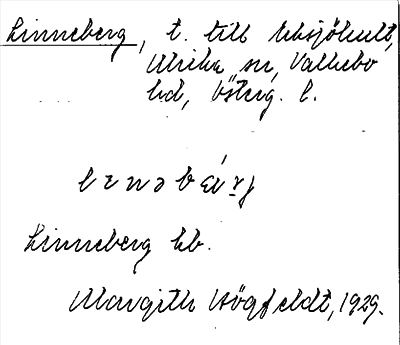 Linneberg, t. till Uksjöhult,
Ulrika sn, Vallebo
hd, Österg. l.
Linneberg hb.
Margith Högfeldt, 1929.